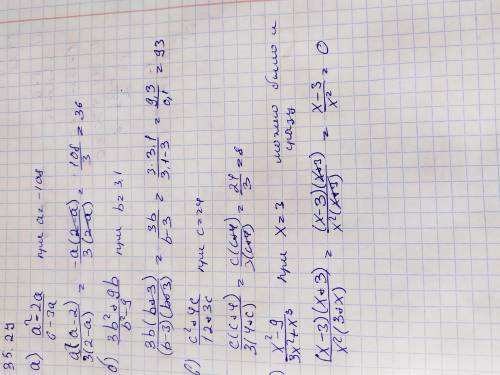 35.29
а) (a²-2a)/(6-3a) при a=-108
a(a-2)/3(2-a) = -a(2-a)/3(2-a) = 108/3 = 36
б) (3b²+9b)/(b²-9) при b=3,1
3b(b+3)/(b-3)(b+3) = 3b/(b-3) = 3·3,1/(3,1-3) = 9,3/0,1 = 93
в) (c²+4c)/(12+3c) при c=24
c(c+4)/3(4+c) = c(c+4)/3(c+4) = 24/3 = 8
) (x²-9)/(3x²+x³) при x=3 можно было и сразу
(x-3)(x+3)/x²(3+x) = (x-3)(x+3)/x²(x+3) = (x-3)/x² = 0